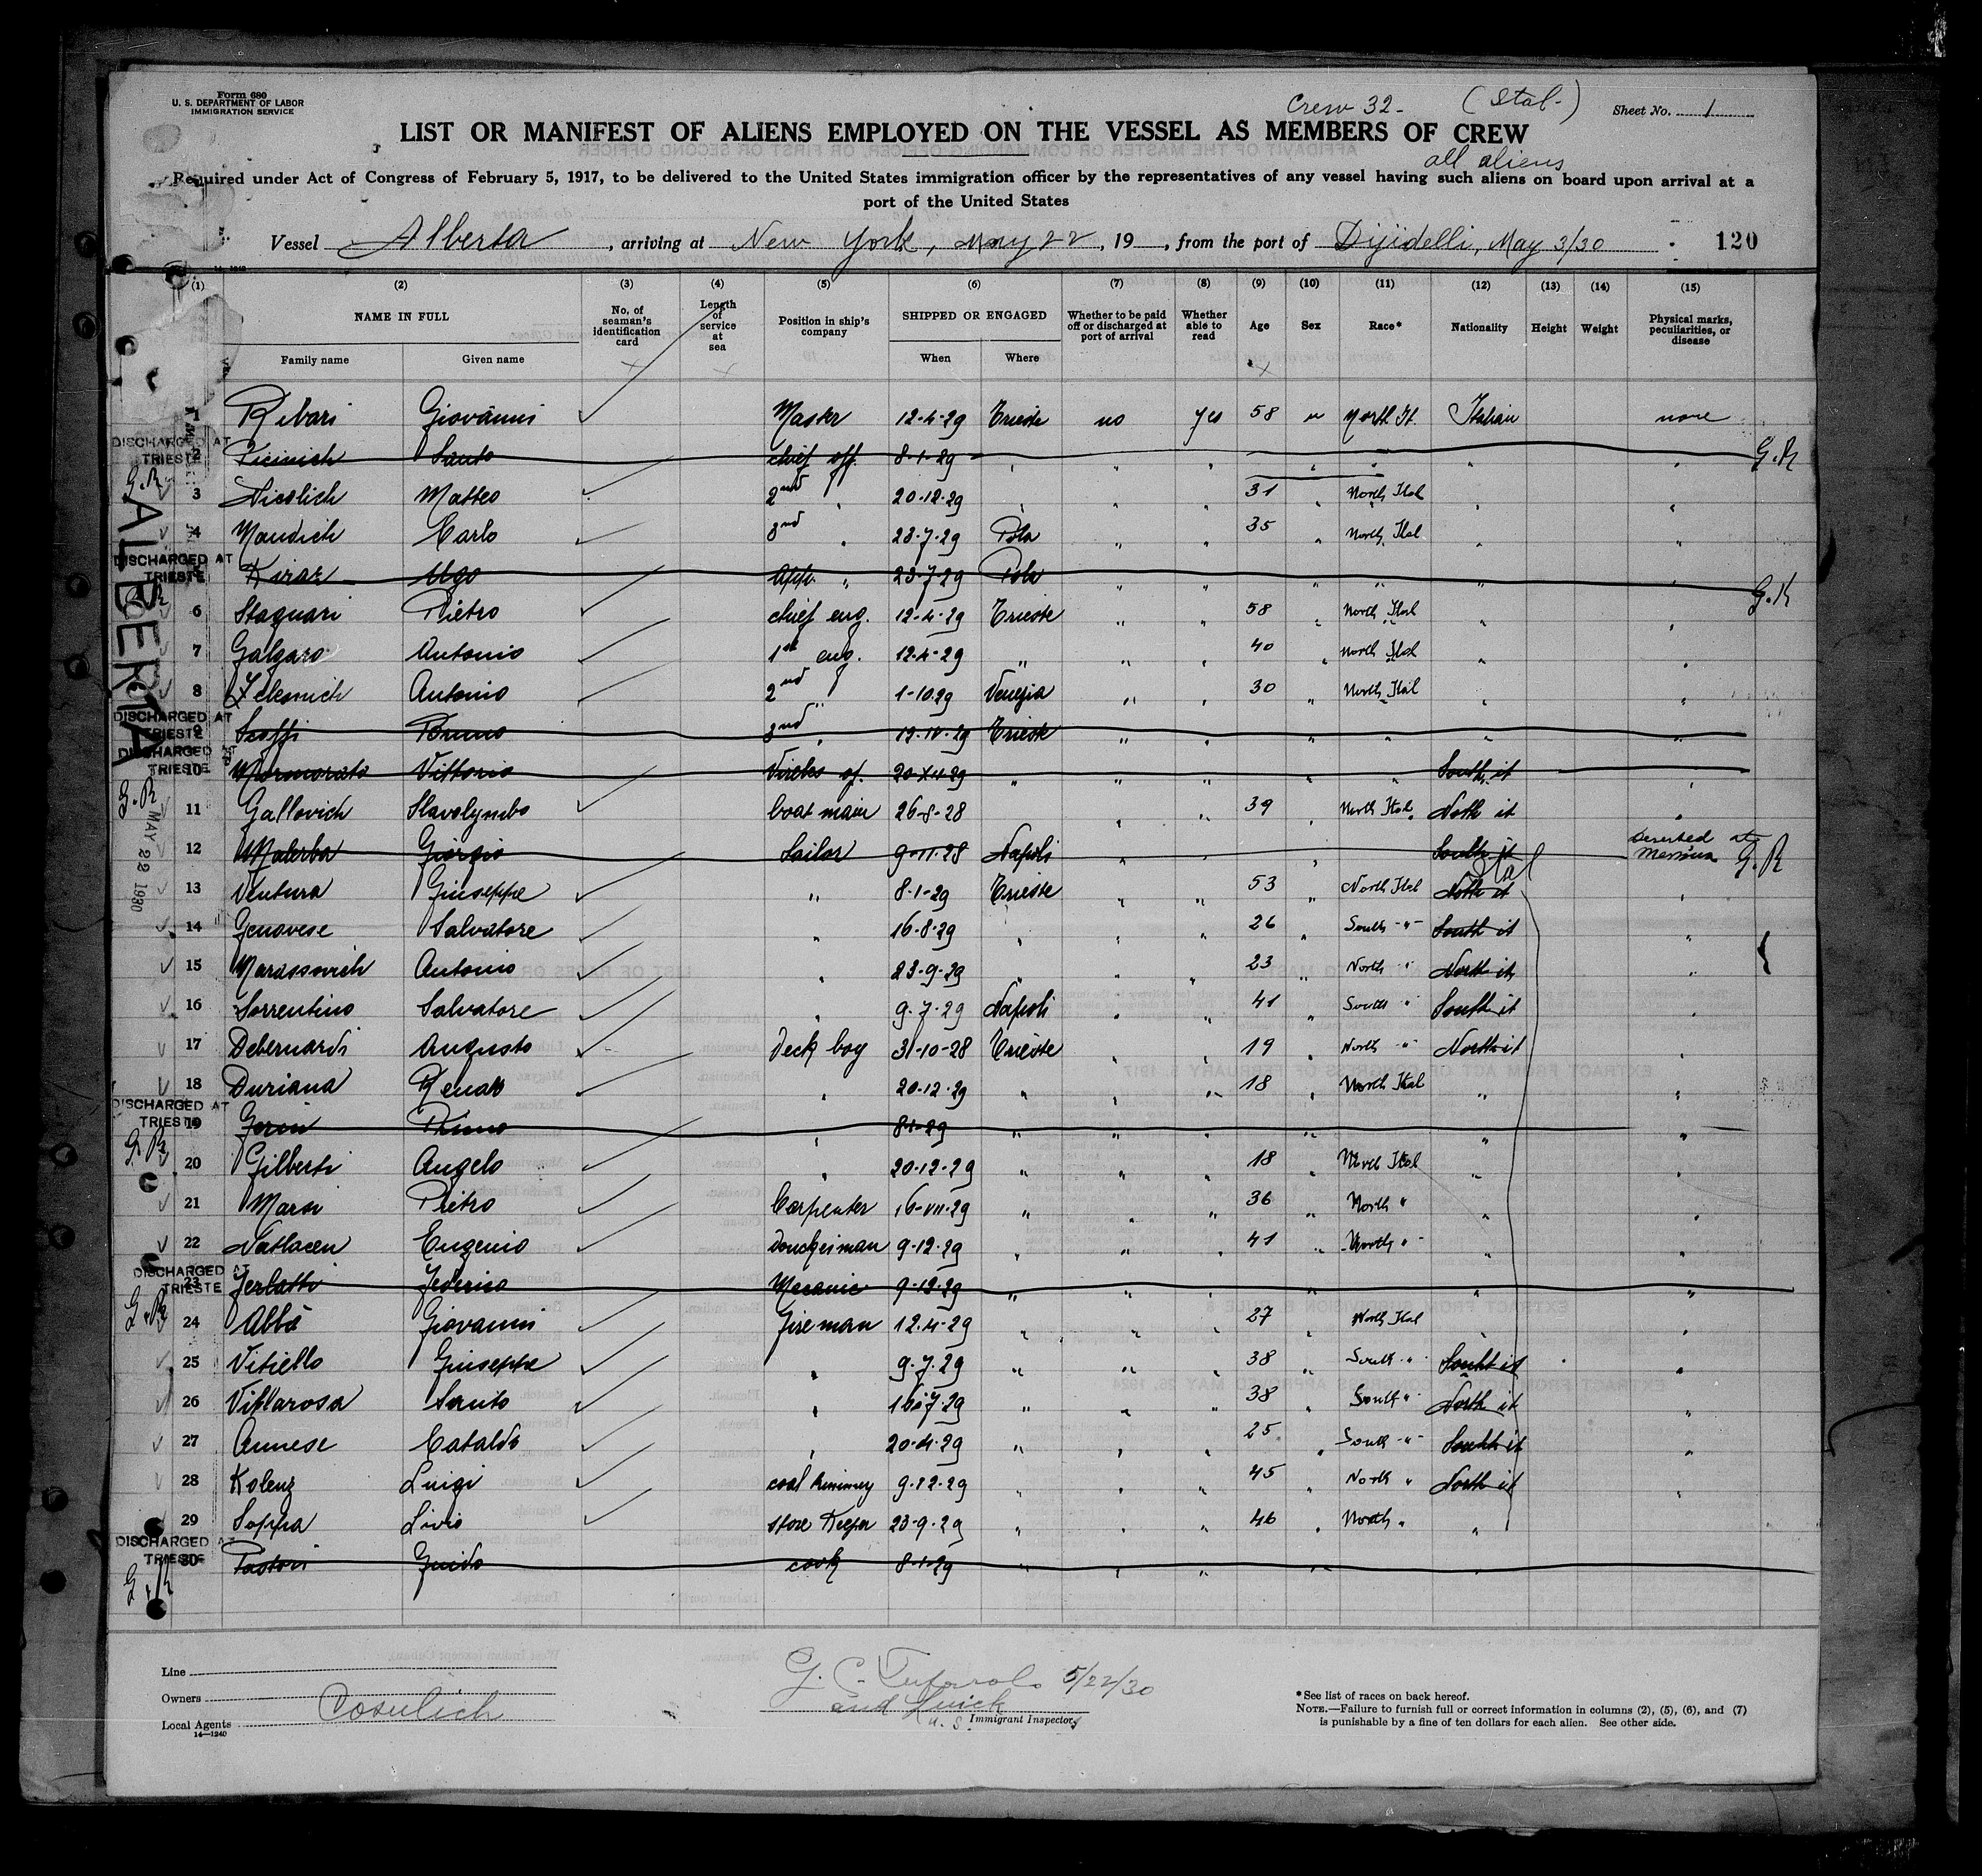 Form 680
U. S. DEPARTMENT OF LABOR
IMMIGRATION SERVICE
Crew 32- (Ital-)
Sheet No. 1
LIST OR MANIFEST OF ALIENS EMPLOYED ON THE VESSEL AS MEMBERS OF CREW
all aliens
Required under Act of Congress of February 5, 1917, to be delivered to the United States immigration officer by the representatives of any vessel having such aliens on board upon arrival at a
port of the United States
Vessel Alberta, arriving at New York, May 22, 19, from the port of Djijdelli, May 3/30 120
(1) (2) (3) (4) (5) (6) (7) (8) (9) (10) (11) (12) (13) (14) (15)
NAME IN FULL
Family name Given name
No. of seaman's identification card
Length of service at sea
Position in ship's company
SHIPPED OR ENGAGED
When Where
Whether to be paid off or discharged at port of arrival
Whether able to read
Age Sex Race* Nationality Height Weight
Physical marks, peculiarities, or disease
ALBERTA
MAY 22 1930
1 Ribari Giovanni Master 12-4-29 Trieste no yes 58 m North It. Italian none
DISCHARGED AT TRIESTE
2 Picinich Santo chief off. 8-1-29 " " " " " " " G.R
G.R
3 Nicolich Matteo 2nd " 20-12-29 " " " 31 " North Ital " "
4 Mandich Carlo 3rd " 23-7-29 Pola " " 35 " North Ital " "
DISCHARGED AT TRIESTE
5 Ugo App. " 23-7-29 Pola " " " " " " G.R
6 Stagnari Pietro chief eng. 12-4-29 Trieste " " 58 " North Ital " "
7 Galgaro Antonio 1st eng. 12-4-29 " " " 40 " North Ital " "
8 Antonio 2nd " 1-10-29 Venezia " " 30 " North Ital " "
DISCHARGED AT TRIESTE
9 Bruno 3rd " Trieste " " " " " "
DISCHARGED AT TRIESTE
10 Mormorato Vittorio 20-XII-29 " " " " " South it "
G.R
11 Gallovich boat main 26-8-28 " " 39 North Ital. North it "
12 Malerba Giorgio Sailor 9-11-28 Napoli " " South it Deserted at Messina G.R
Ital
13 Ventura Giuseppe " 8-1-29 Trieste " " 53 " North Ital North it "
14 Genovese Salvatore " 16-8-29 " " " 26 " South -"- South it "
15 Marassovich Antonio " 23-9-29 " " " 23 " North " North it "
16 Sorrentino Salvatore " 9-7-29 Napoli " " 41 " South " South it "
17 Debernardi Augusto Deck boy 31-10-28 Trieste " " 19 " North -"- North it "
18 Duriana Renato " 20-12-29 " " " 18 " North Ital " "
DISCHARGED AT TRIESTE
19 Gerin Primo " 8-1-29 " " " " " " "
G.R
20 Gilberti Angelo " 20-12-29 " " " 18 " North Ital " "
21 Marsi Pietro Carpenter 16-VII-29 " " " 36 " North " " "
22 Natlacen Eugenio Donckeiman 9-12-29 " " " 41 " North " " "
DISCHARGED AT TRIESTE
23 Ferlatti Federico Mecanic 9-12-29 " " " " " "
G.R
24 Abbà Giovanni Fireman 12.4-29 " " " 27 " North Ital " "
25 Vitiello Giuseppe " 9-7-29 " " " 38 " South -"- South it "
26 Villarosa Santo " 16-7-29 " " " 38 " South " North it "
27 Annese Cataldo " 20-4-29 " " " 25 " South -"- South it "
28 Kolenz Luigi 9-12-29 " " " 45 " North " North it "
29 Soppa Livio store Keeper 23-9-29 " " " 46 " North " "
DISCHARGED AT TRIESTE
30 Pastori Guido cook 8-1-29 " " " " "
G.R
Line
Owners Cosulich
Local Agents
14—1240
5/22/30
and
U. S. Immigrant Inspectors
*See list of races on back hereof.
NOTE.—Failure to furnish full or correct information in columns (2), (5), (6), and (7)
is punishable by a fine of ten dollars for each alien. See other side.